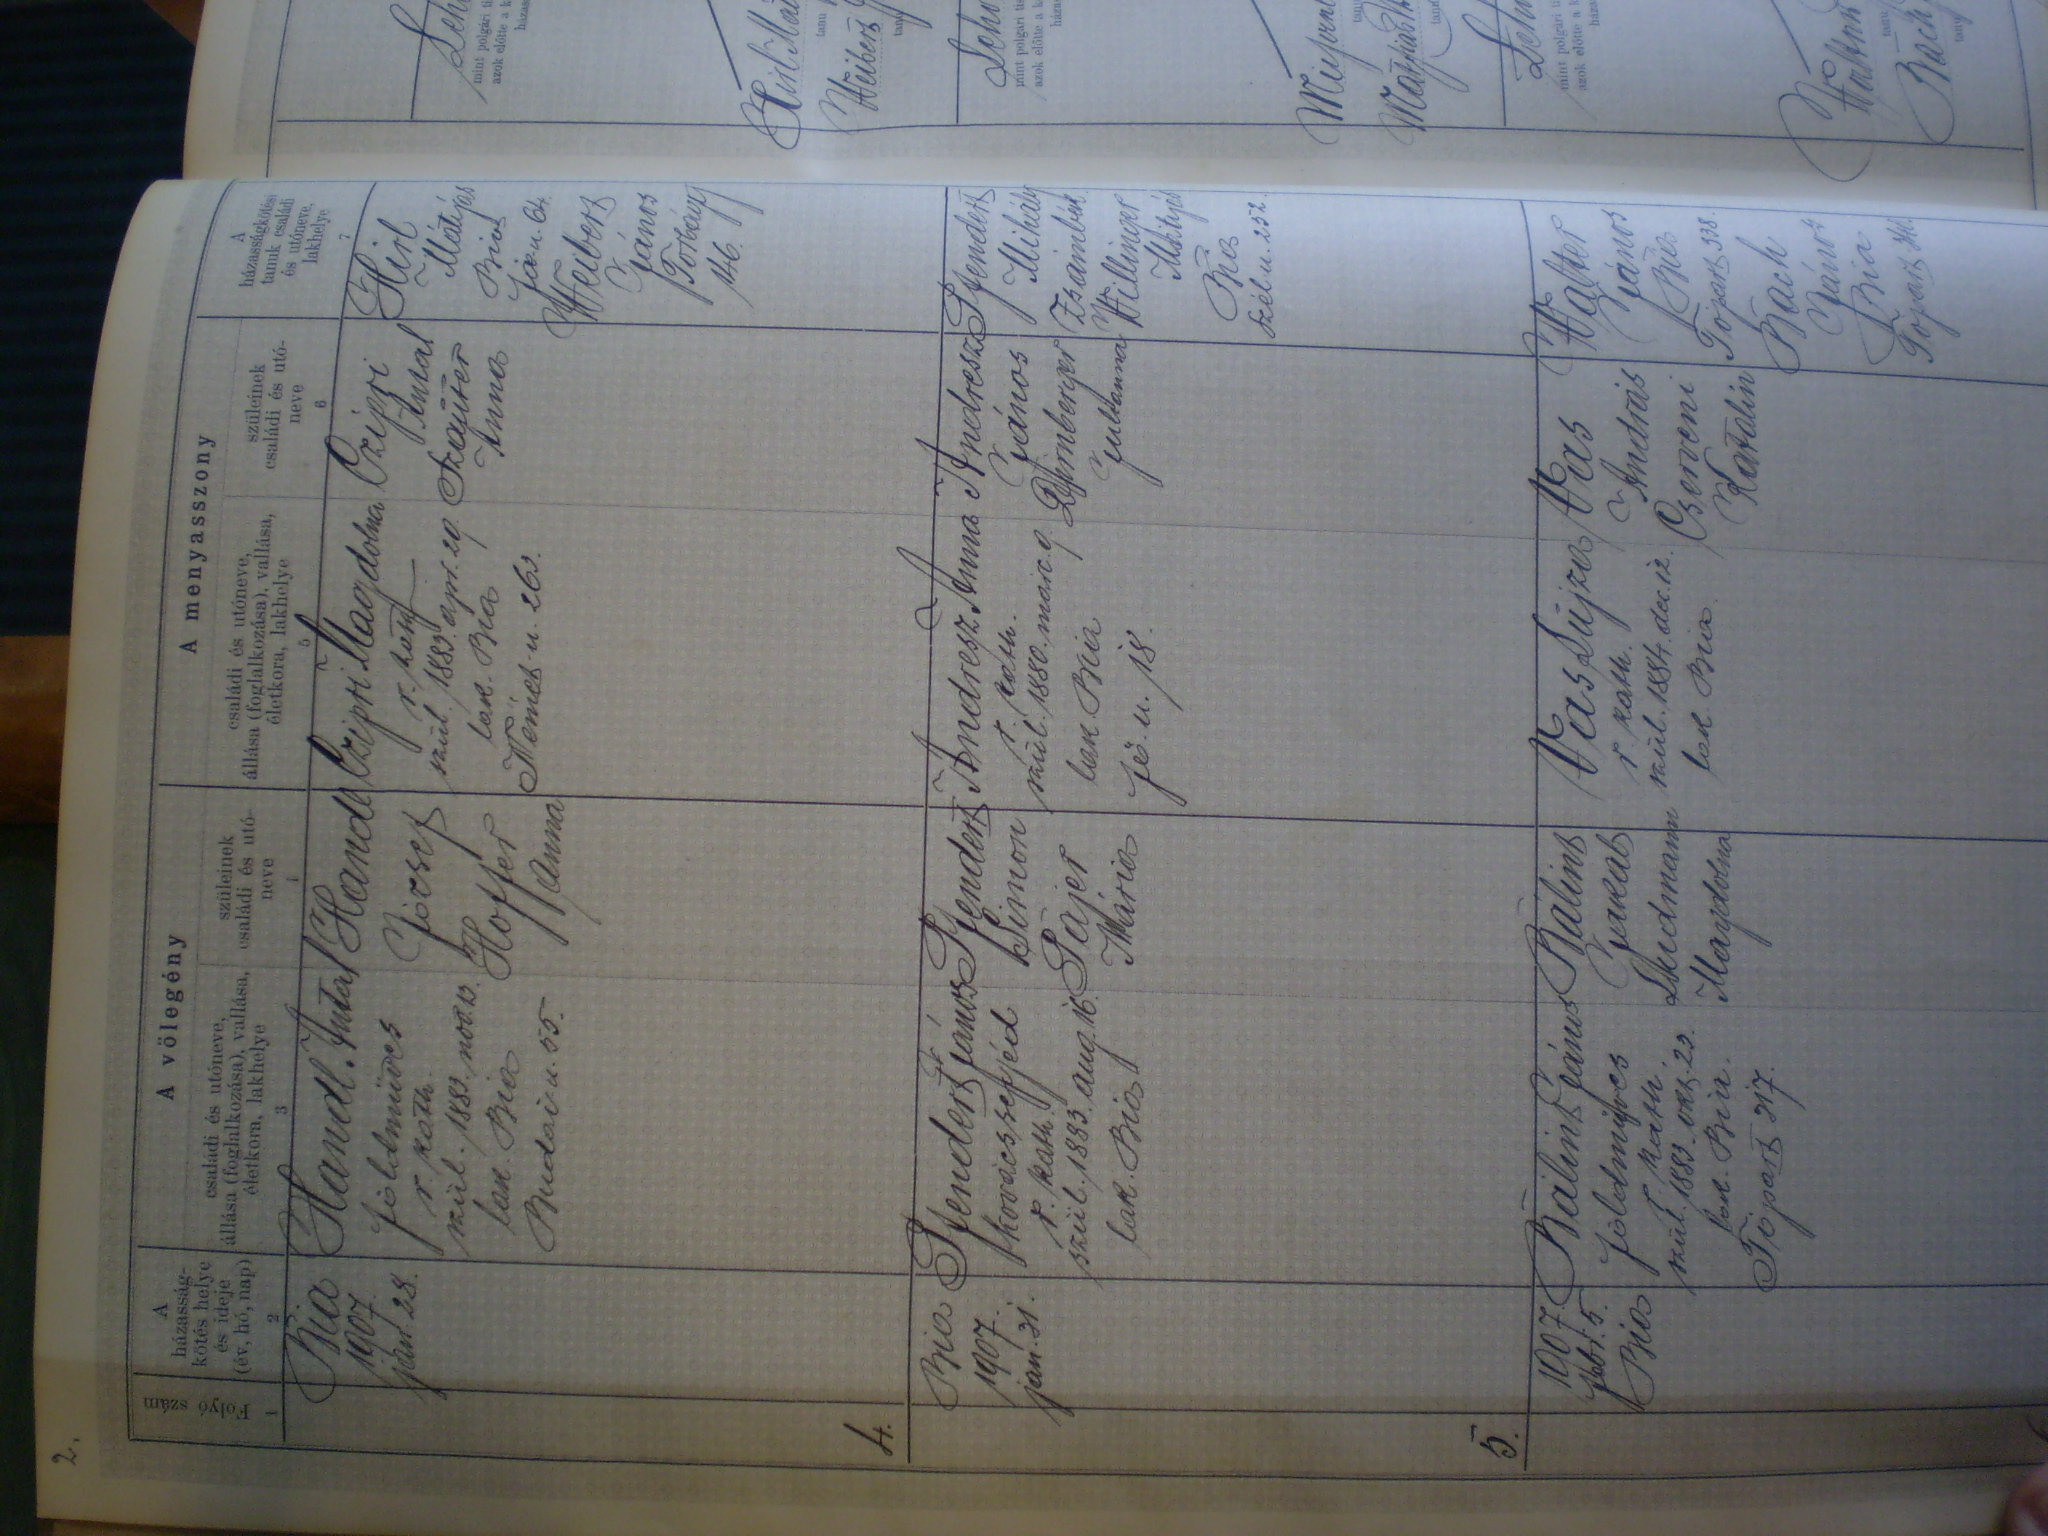 2.
Folyó szám
A
házasság-
kötés helye
és ideje
(év, hó, nap)
A völegény
családi és utóneve,
állása (foglalkozása), vallása,
életkora, lakhelye
szüleinek
családi és utó-
neve
A menyasszony
családi és utóneve,
állása (foglalkozása), vallása,
életkora, lakhelye
szüleinek
családi és utó-
neve
A
házasságkötési
tanuk családi
és utóneve,
lakhelye
1
2
3
4
5
6
7
Bia
1907.
jan. 28.
Handl Antal
földmüves
r. kath.
szül. 1883. nov. 13.
lak. Bia
Budai u. 55.
Handl
József
Hoffer
Anna
Czipri Magdolna
r. kath.
szül. 1889. apr. 29
lak. Bia
Német u. 263.
Czipri
Antal
Anna
Hirl
Mátyás
Bia
Weibers
János
Torbágy
146.
4.
Bia
1907.
jan. 31.
János
kovácssegéd
r. kath.
szül. 1883. aug. 16.
lak. Bia
Simon
Pajer
Mária
Andresz Anna
r. kath.
szül. 1880. márc. 9.
lak. Bia
fö u. 18.
Andresz
János
Julianna
Mihály
Zsámbék
Willinger
Mátyás
Bia
Szél u. 252.
5.
1907.
febr. 5.
Bia
Bálint János
földmüves
r. kath.
szül. 1883. okt. 23.
lak. Bia.
Töpart 317.
Bálint
Jakab
Magdolna
Vas Lujza
r. kath.
szül. 1884. dec. 12.
lak. Bia
Vas
András
Cserveni
Katalin
Walter
János
Bia
Töpart 338.
Bach
János
Bia
Töpart
mint polgári
azok elötte a k
háza
tanu
Weibers
mint polgári
azok elötte a k
háza
mint polgári
azok elötte a k
háza
Bach